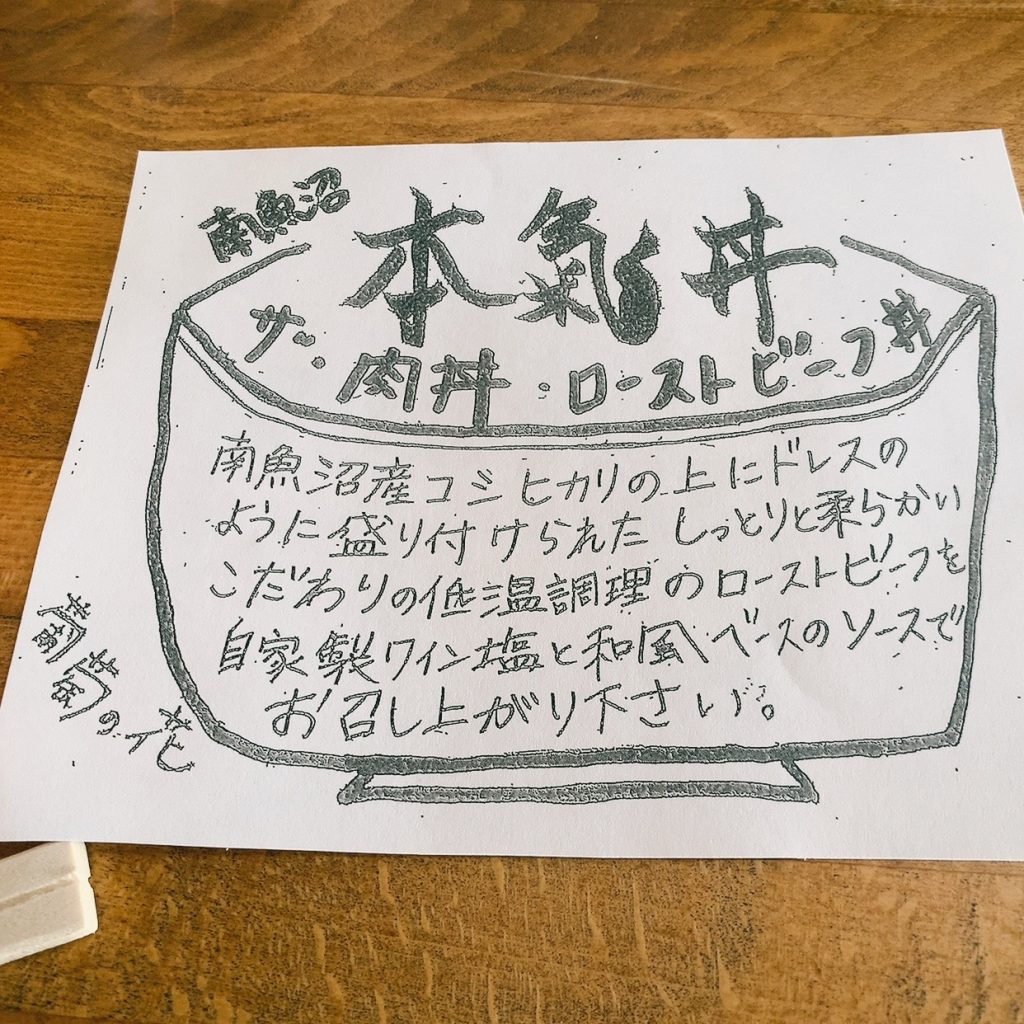 南魚沼
本氣丼
ザ・肉丼・ローストビーフ丼
南魚沼産コシヒカリの上にドレスの
ように盛り付けられたしっとりと柔らかい
こだわりの低温調理のローストビーフを
自家製ワイン塩と和風ベースのソースで
お召し上がり下さい。
蘭蘭の花